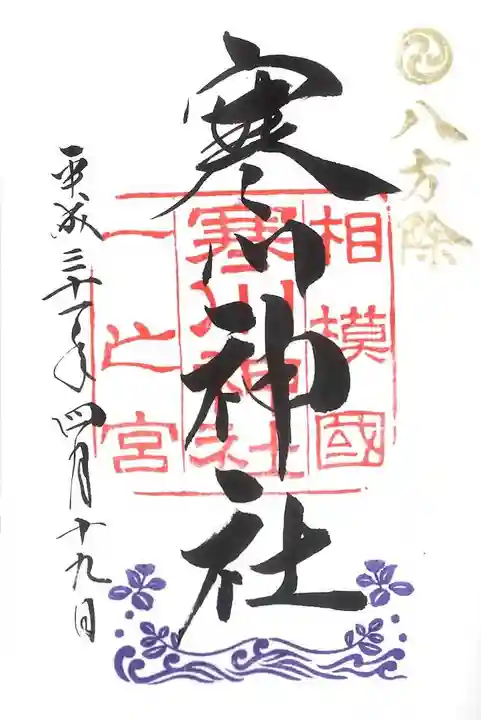 八方除
相模國
寒川神社
一之宮
寒川神社
平成三十一年四月十九日